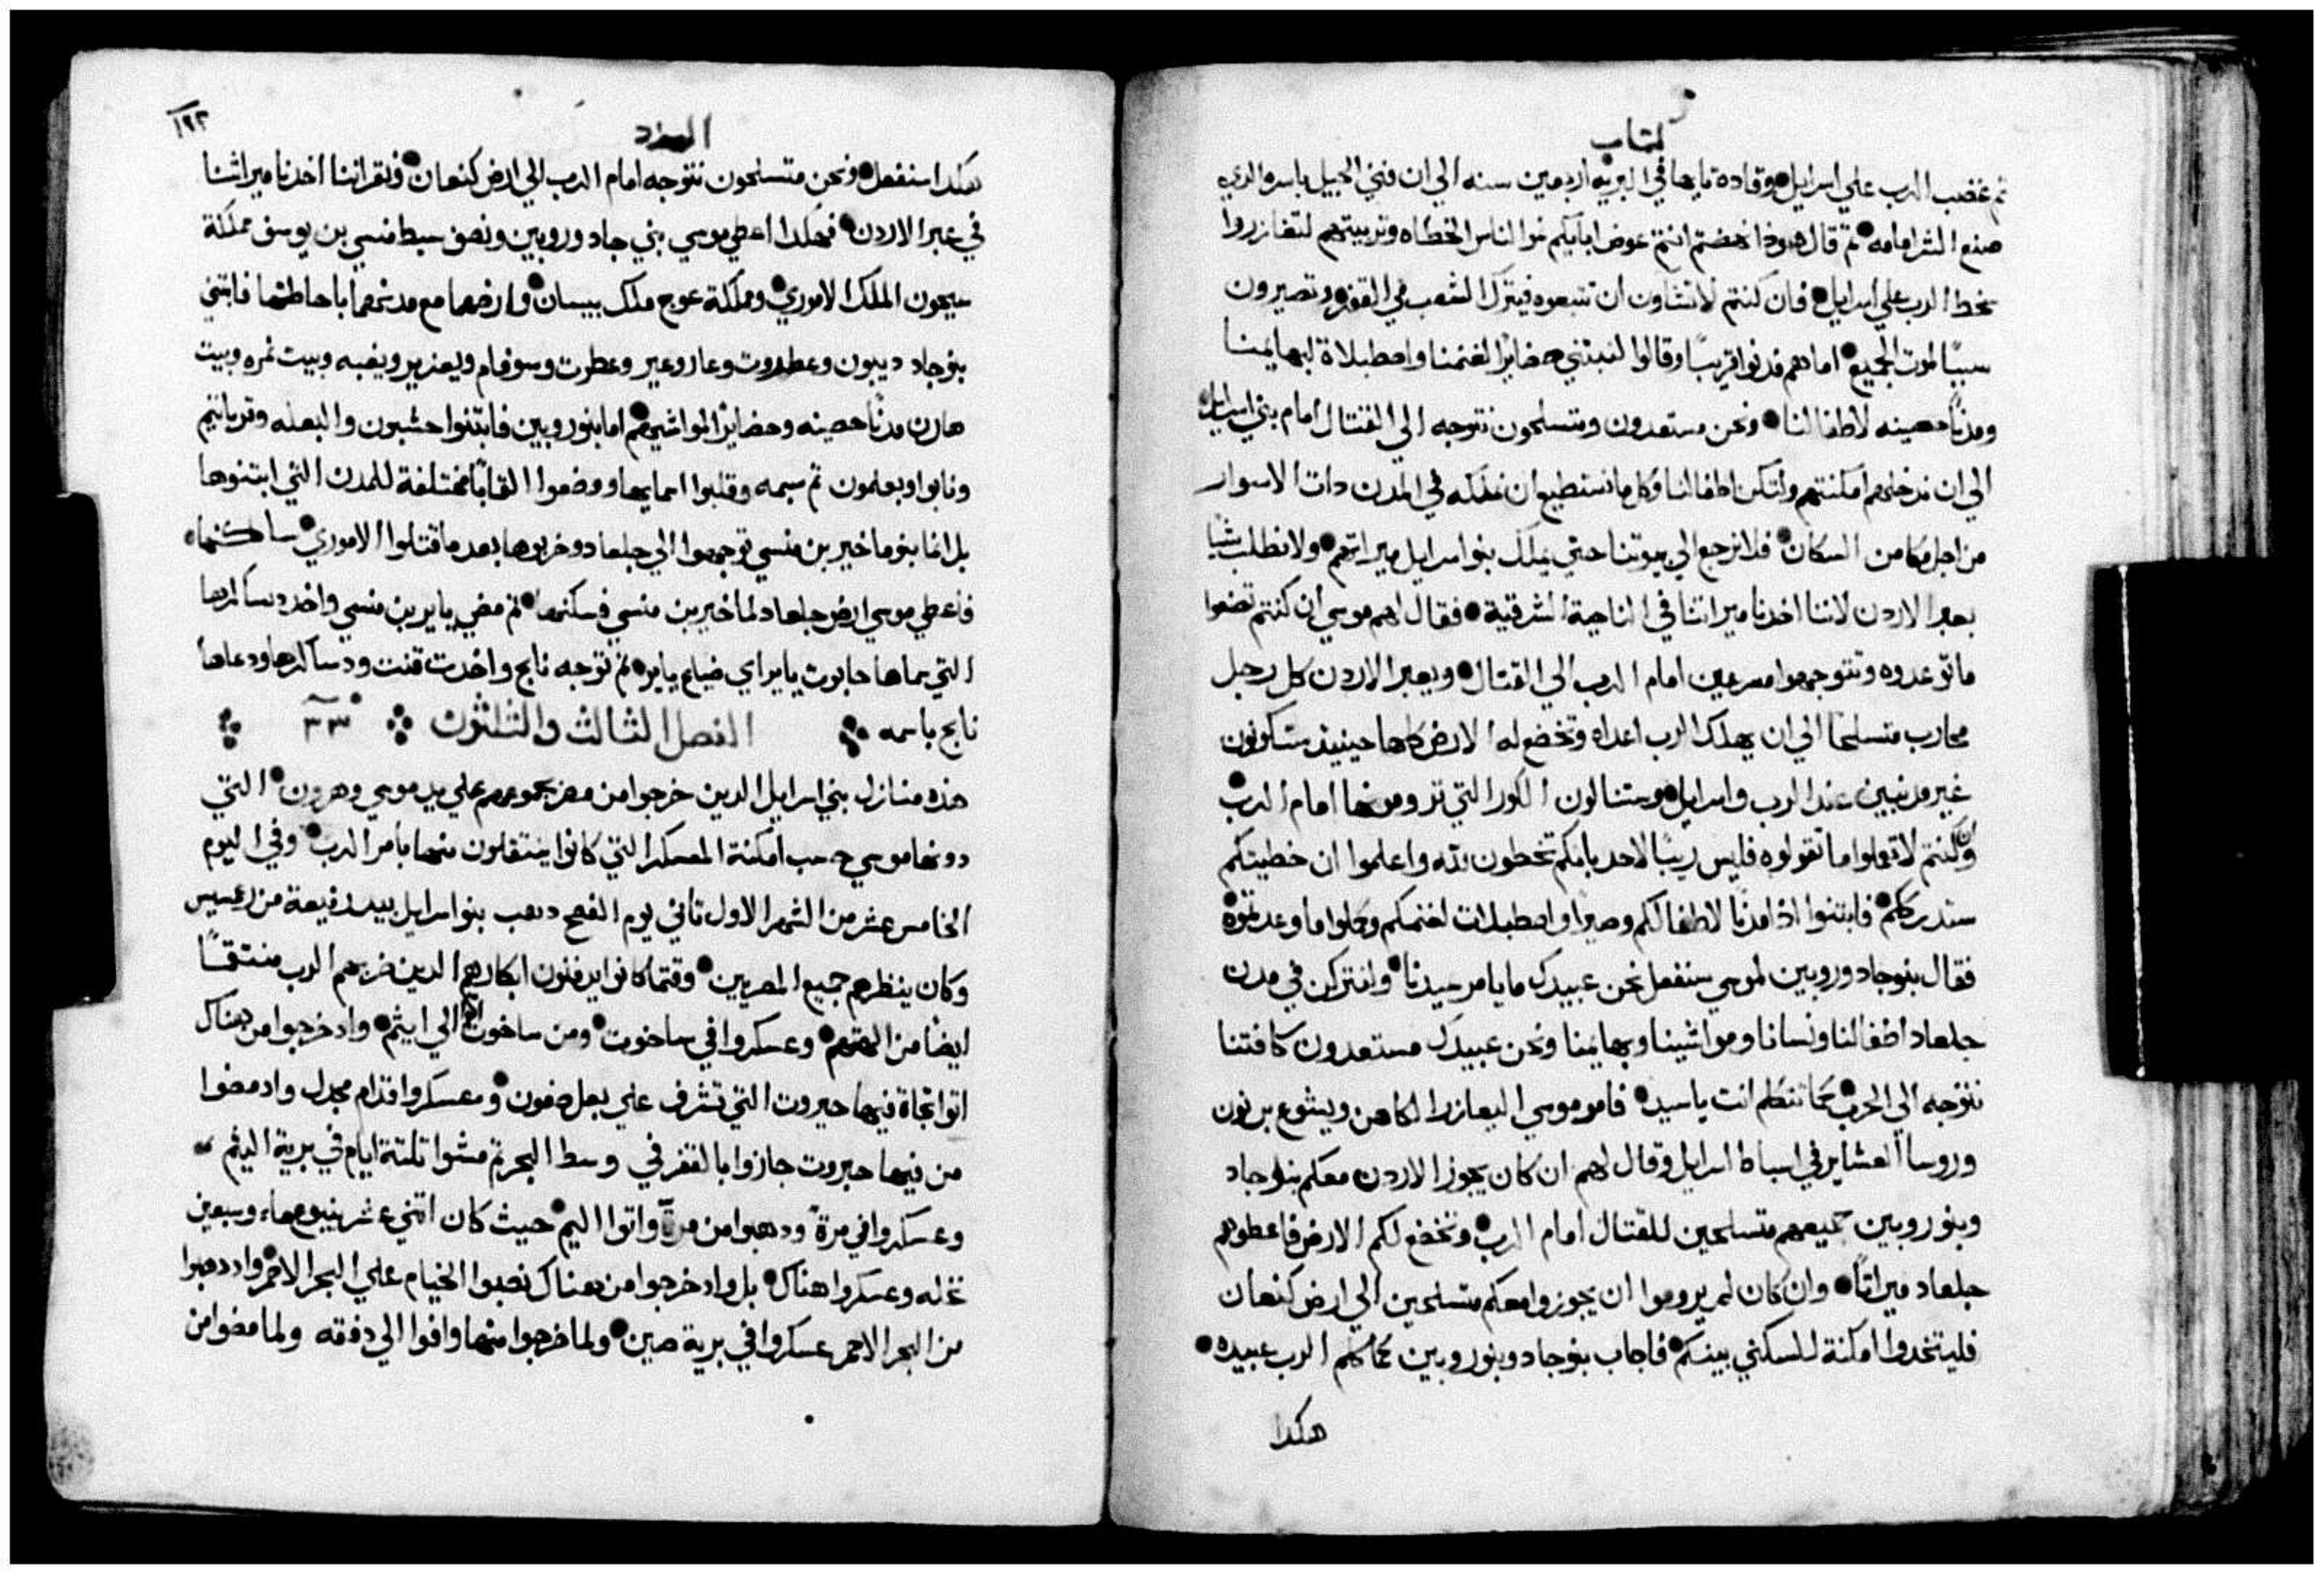 كتاب
ثم غضب الرب علي اسرايل وقاده تايها في البريه اربعين سنه الي ان فني الجيل باسره الدي
صنع الشر امامه ثم قال هودا نهضتم انتم عوض ابايكم نموا الناس الخطاه وتربيتهم لتضازروا
سخط الرب علي اسرايل فان كنتم لا تشاون ان تتبعوه فيترك الشعب في القفر وتصيرون
سببًا لموت الجميع اما هم فدنوا قريبًا وقالوا لنبتني حضايرًا لغنمنا واصطبلاة لبهايمنا
ومدنًا حصينه لاطفالنا ونحن مستعدون ومتسلحون نتوجه الي القتال امام بني اسرايل
الي ان ندخلهم امكنتهم ولتكن اطفالنا وكل ما نستطيع ان نملكه في المدن دات الاسوار
من اجل مكامن السكان فلا نرجع الي بيوتنا حتي يملك بنوا اسرايل ميراتهم ولا نطلب شيا
بعبر الاردن لاننا اخدنا ميراتنا في الناحية الشرقية فقال لهم موسي ان كنتم تضعوا
ما توعدوه وتتوجهوا مسرعين امام الرب الي القتال ويعبر الاردن كل رجل
محارب متسلحًا الي ان يهلك الرب اعداه وتخضع له الارض كلها حينيذ ستكونون
غير مدنبين عند الرب واسرايل وستنالون الكور التي ترومونها امام الرب
وان كنتم لا تعملوا ما تقولوه فليس ريبًا لاحد بانكم تخطون لله واعلموا ان خطيتكم
ستدرككم فابتنوا ادا مدنًا لاطفالكم وصيرا واصطبلات لغنمكم وكلوا ما وعدتموه
فقال بنو جاد وروبين لموسي سنفعل نحن عبيدك ما يامر سيدنا ولنترك في مدن
جلعاد اطفالنا ونسانا ومواشينا وبهايمنا ونحن عبيدك مستعدون كافتنا
نتوجه الي الحرب كما تتكلم انت يا سيد فامر موسي اليعازر الكاهن ويشوع بن نون
وروسا العشاير في اسباط اسرايل وقال لهم ان كان يجوز الاردن معكم بنو جاد
وبنو روبين جميعهم متسلحين للقتال امام الرب وتخضع لكم الارض فاعطوهم
جلعاد ميراتًا وان كان لم يروموا ان يجوزوا معكم متسلحين الي ارض كنعان
فليتخدوا امكنة للسكني بينكم فاجاب بنو جاد وبنو روبين كما كلم الرب عبيده
هكدا
العدد
١٩٢
هكدا سنفعل ونحن متسلحون نتوجه امام الرب الي ارض كنعان ونقر اننا اخدنا ميراثنا
في عبر الاردن فهكدا اعطي موسي بني جاد وروبين ونصف سبط منسي بن يوسف مملكة
سيحون الملك الاموري ومملكة عوج ملك بيسان وارضهما مع مدنهما باحاطتها فابتني
بنو جاد ديبون وعطروت وعاروعير وعطرت وسوفام ويعزير ويغبه وبيت نمره وبيت
هارن مدنًا حصينه وحضاير لمواشيهم اما بنو روبين فابتنوا حشبون والبعله وقرياتيم
ونابو وبعلمون ثم سبمه وقلبوا اسمايها ووضعوا القابًا مختلفة للمدن التي ابتنوها
بل انما بنو ماخير بن منسي توجهوا الي جلعاد وخربوها بعد ما قتلوا الاموري ساكنها
فاعطي موسي ارض جلعاد لماخير بن منسي فسكنها ثم مضي يايير بن منسي واخد دساكرها
التي سماها حابوت يايير اي ضياع يايير ثم توجه نابح واخدت قنت ودساكرها ودعاها
نابح باسمه الفصل الثالث والثلثون ٣٣
هذه منازل بني اسرايل الدين خرجوا من مصر بجموعهم علي يد موسي وهرون التي
دونها موسي حسب امكنة المعسكر التي كانوا ينتقلون منها بامر الرب وفي اليوم
الخامس عشر من الشهر الاول تاني يوم الفصح دهب بنو اسرايل بيد رفيعة من رعمسيس
وكان ينظرهم جميع المصريين وقتما كانوا يدفنون ابكارهم الدين ضربهم الرب منتقمًا
ايضًا من الهتهم وعسكروا في ساخوت ومن ساخوت اتوا الي ايثم واد خرجوا من هناك
اتوا تجاة فيها حيروت التي تشرف علي بعل صفون وعسكروا قدام مجدل واد مضوا
من فيها حيروت جازوا بالقفر في وسط البحر ثم مشوا تلتة ايام في برية ايثم
وعسكروا في مرة ودهبوا من مرة واتوا اليم حيث كان اتني عشر ينبوع ماء وسبعين
نخله وعسكروا هناك بل واد خرجوا من هناك نصبوا الخيام علي البحر الاحمر واد دهبوا
من البحر الاحمر عسكروا في برية صين ولما خرجوا منها وافوا الي دفقه ولما مضوا من